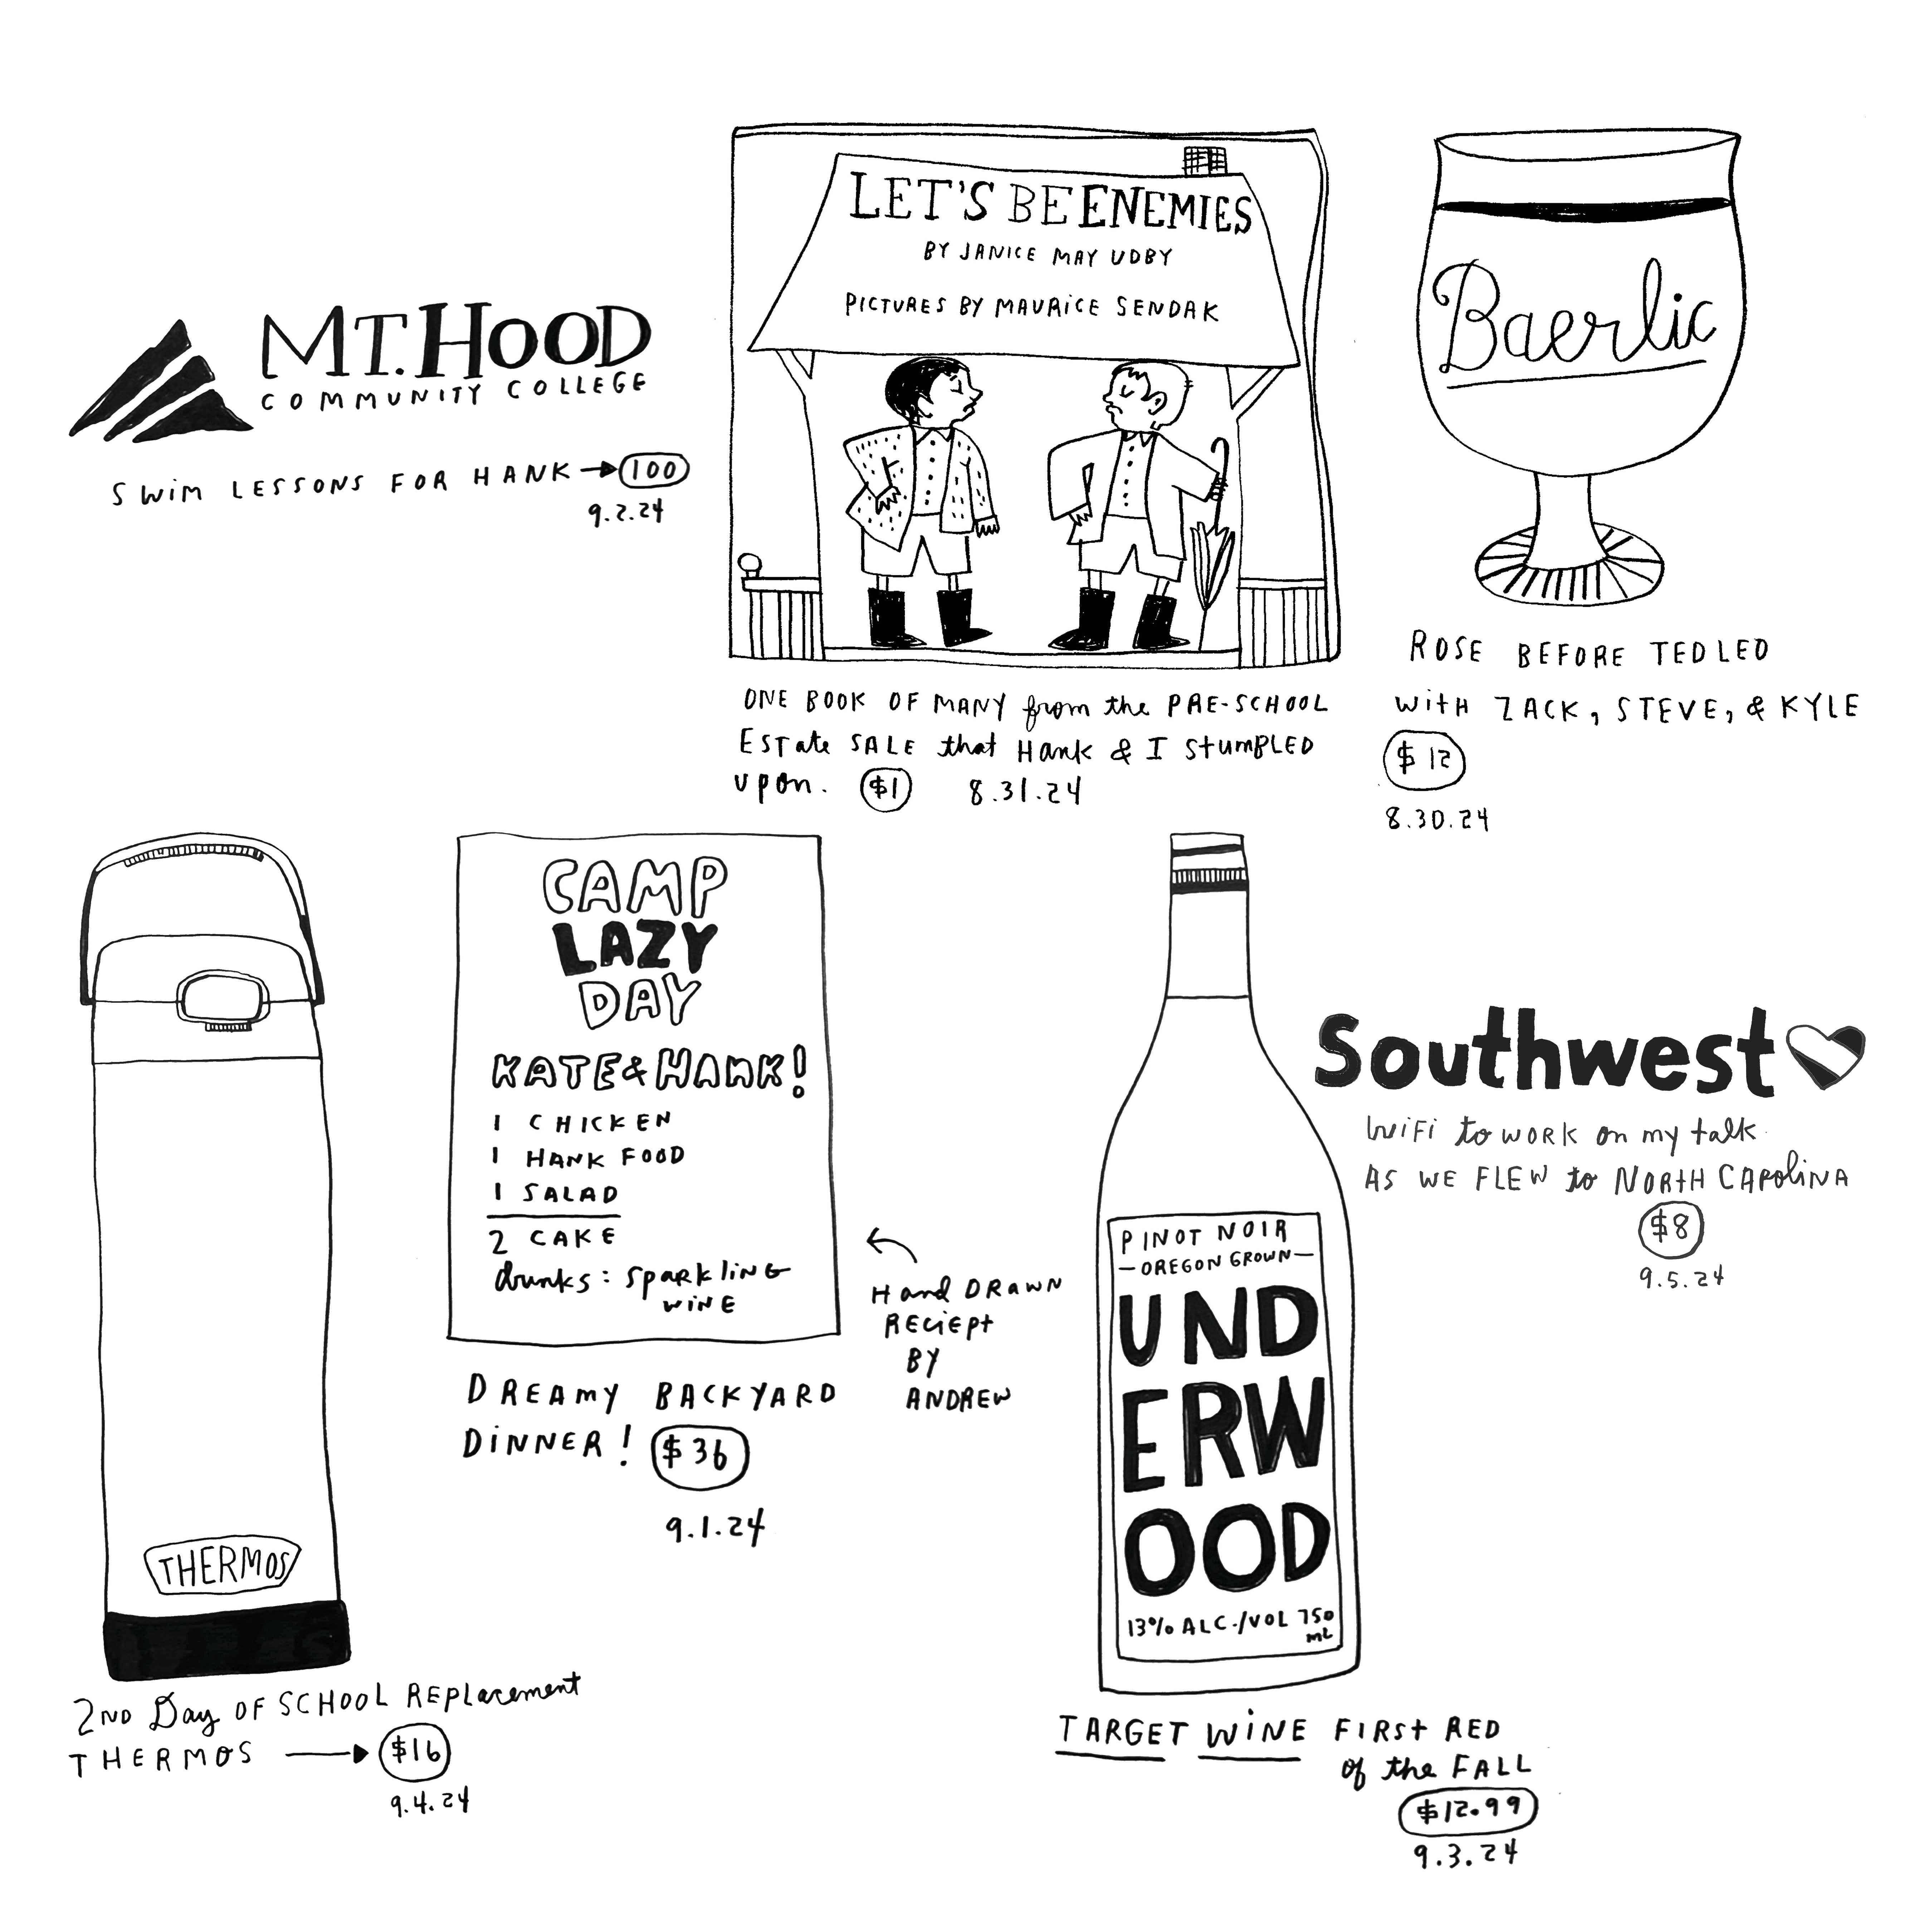 MT. HOOD
COMMUNITY COLLEGE
SWIM LESSONS FOR HANK → 100
9.2.24
LET'S BE ENEMIES
BY JANICE MAY UDBY
PICTURES BY MAURICE SENDAK
ONE BOOK OF MANY from the PRE-SCHOOL
EState SALE that Hank & I StumBLED
upon. $1 8.31.24
Baerlic
ROSE BEFORE TED LEO
with ZACK, STEVE, & KYLE
$12
8.30.24
THERMOS
2ND Day OF SCHOOL REPlacement
THERMOS → $16
9.4.24
CAMP
LAZY
DAY
KATE & HANK!
1 CHICKEN
1 HANK FOOD
1 SALAD
2 CAKE
drunks: SparkliNG
WINE
Hand DRAWN
RECiEPt
BY
ANDREW
DREAMY BACKYARD
DINNER! $36
9.1.24
PINOT NOIR
—OREGON GROWN—
UND
ERW
OOD
13% ALC./VOL 750
mL
TARGET WINE FIRSt RED
of the FALL
$12.99
9.3.24
Southwest
WiFi to WORK on my talk
AS WE FLEW to NORtH CARoliNA
$8
9.5.24